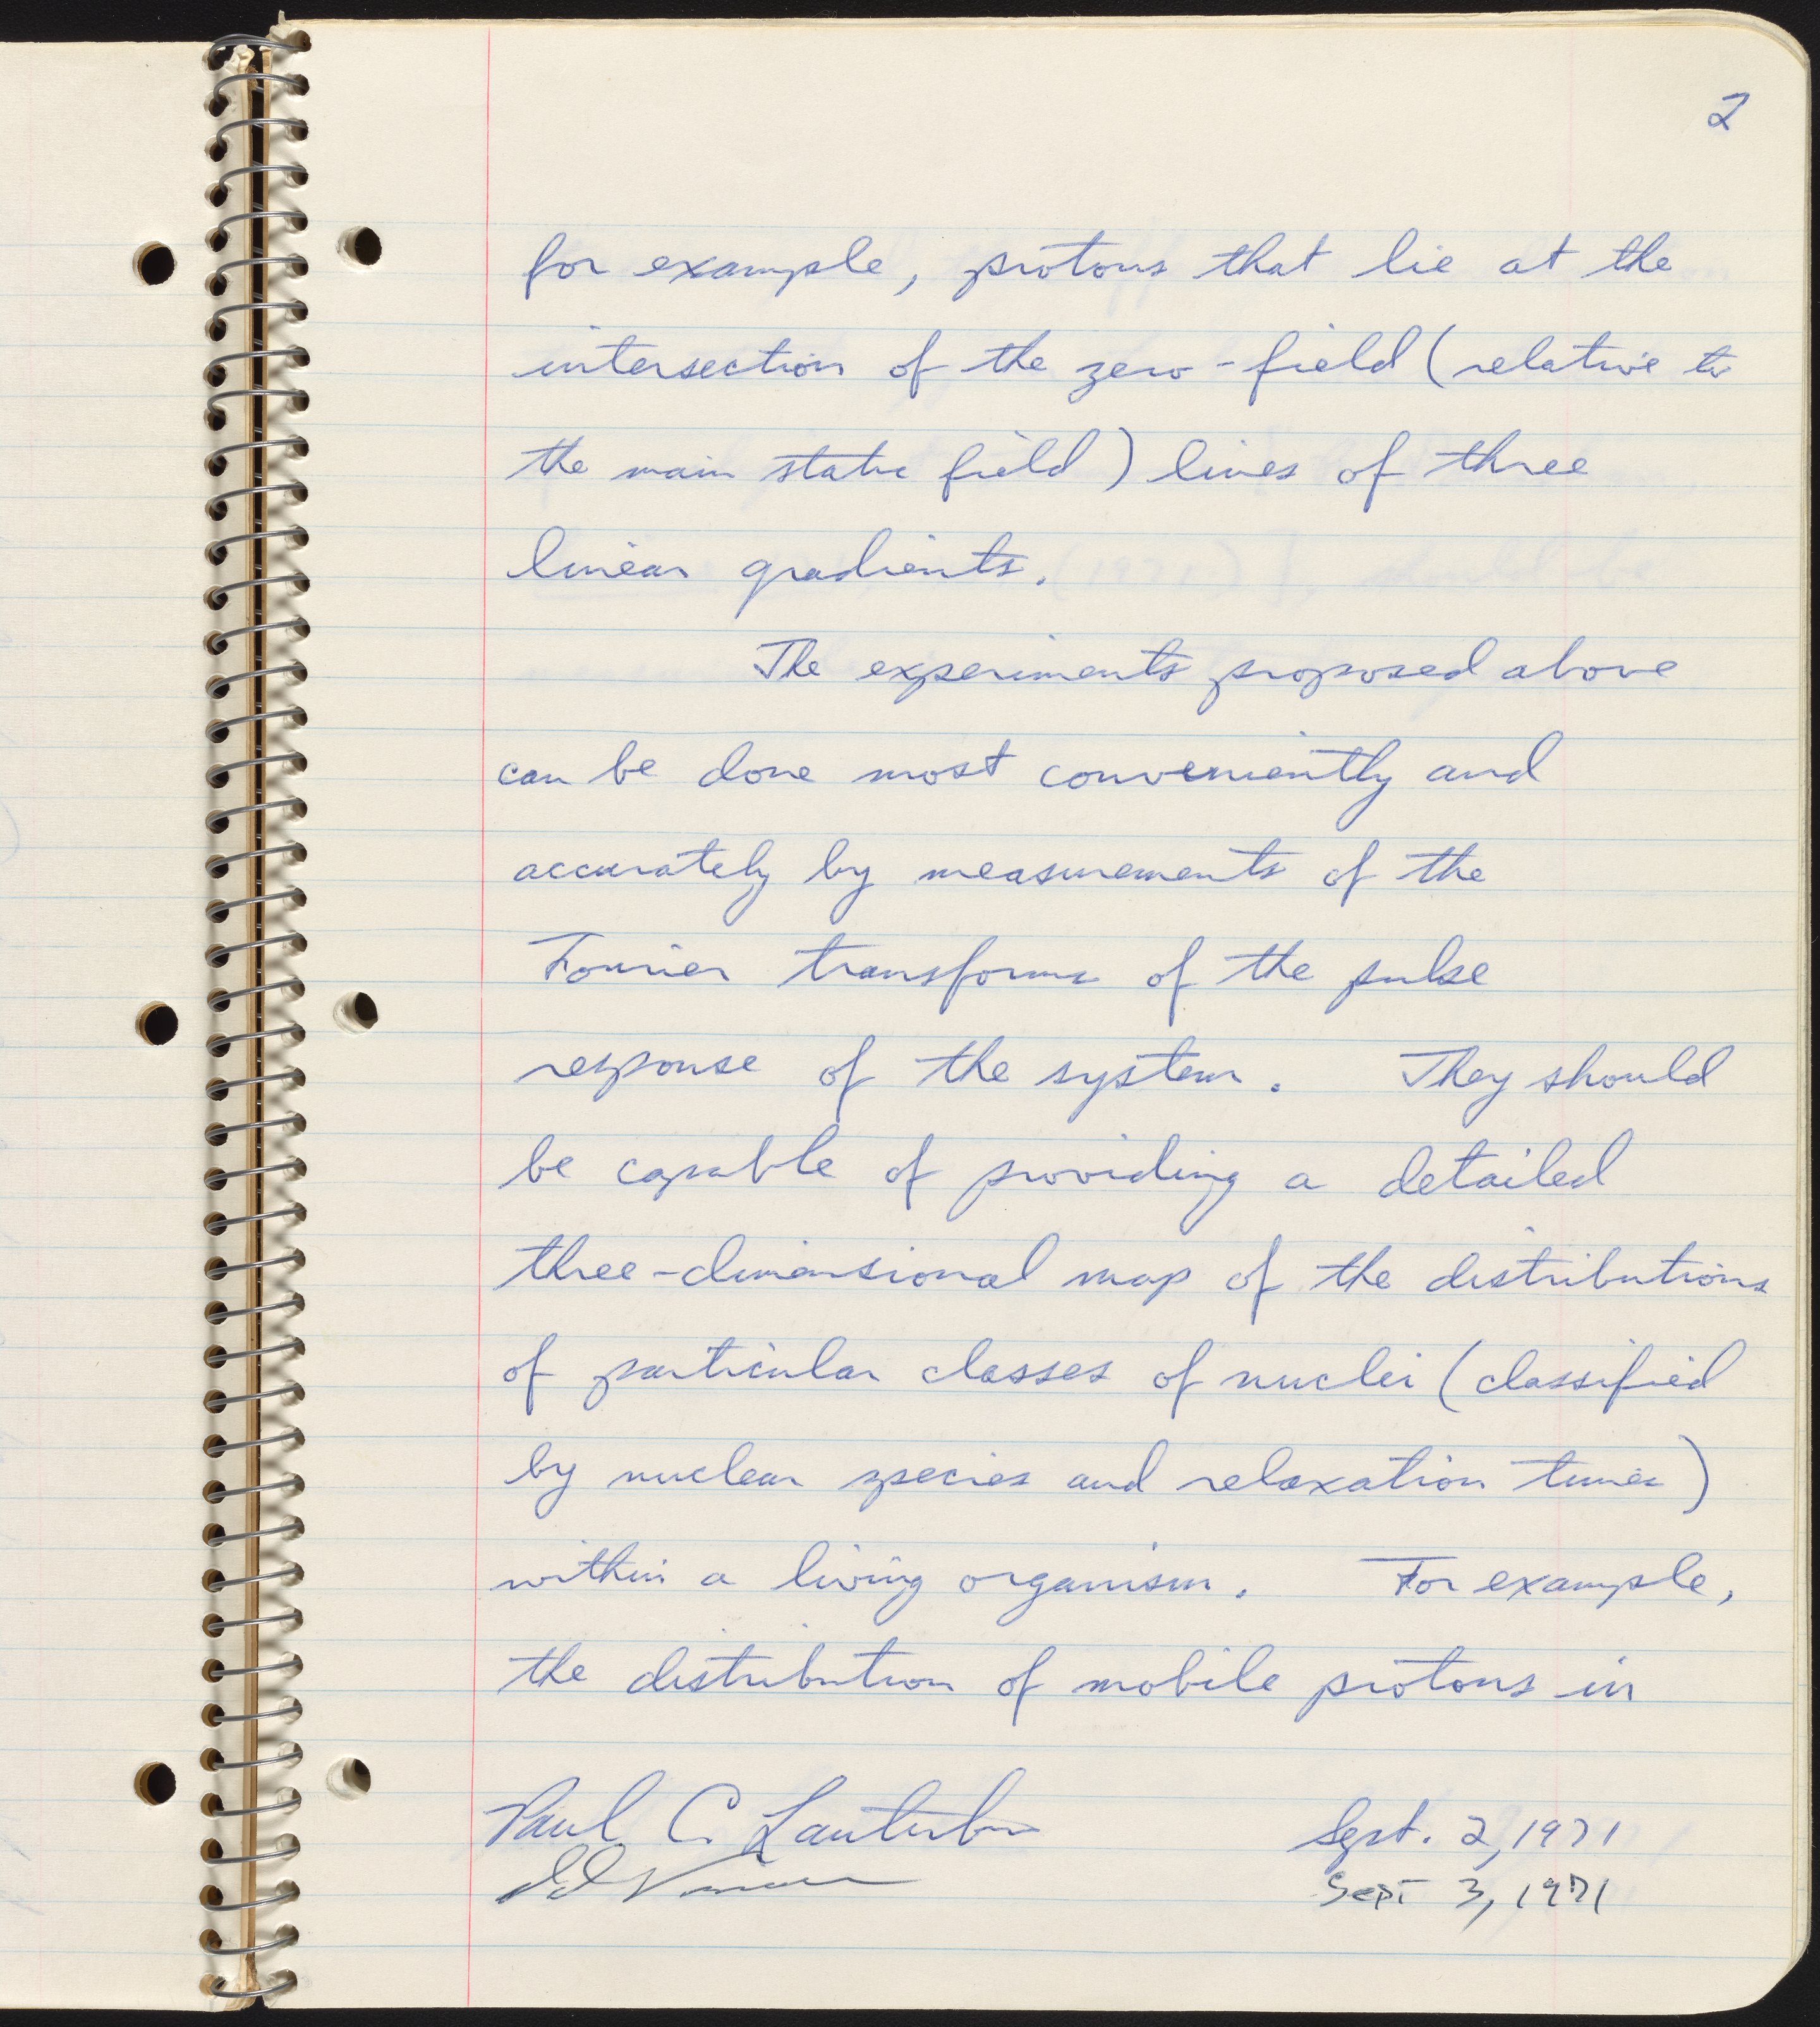 2
for example, protons that lie at the
intersection of the zero-field (relative to
the main static field) lines of three
linear gradients.
The experiments proposed above
can be done most conveniently and
accurately by measurements of the
Fourier transforms of the pulse
response of the system. They should
be capable of providing a detailed
three-dimensional map of the distributions
of particular classes of nuclei (classified
by nuclear species and relaxation times)
within a living organism. For example,
the distribution of mobile protons in
Paul C. Lauterbur Sept. 2, 1971
Sept 3, 1971